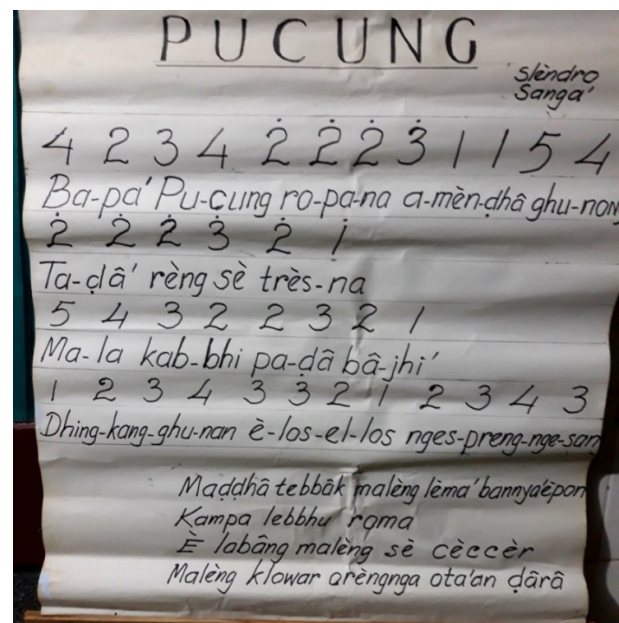 PUCUNG
slèndro
Sanga'
4 2 3 4 2̇ 2̇ 2̇ 3̇ 1 1 5 4
Ba-pa' Pu-cung ro-pa-na a-mèn-ḍhâ ghu-non
2̇ 2̇ 2̇ 3̇ 2̇ 1̇
Ta-ḍâ' rèng sè très-na
5 4 3 2 2 3 2 1
Ma-la kab-bhi pa-ḍâ bâ-jhi'
1 2 3 4 3 3 2 1 2 3 4 3
Dhing-kang-ghu-nan è-los-el-los nges-preng-nge-san
Maḍḍhâ tebbâk malèng lèma' bannyaèpon
Kampa lebbhu roma
È labâng malèng sè cèccèr
Malèng klowar arèngnga ota'an ḍârâ